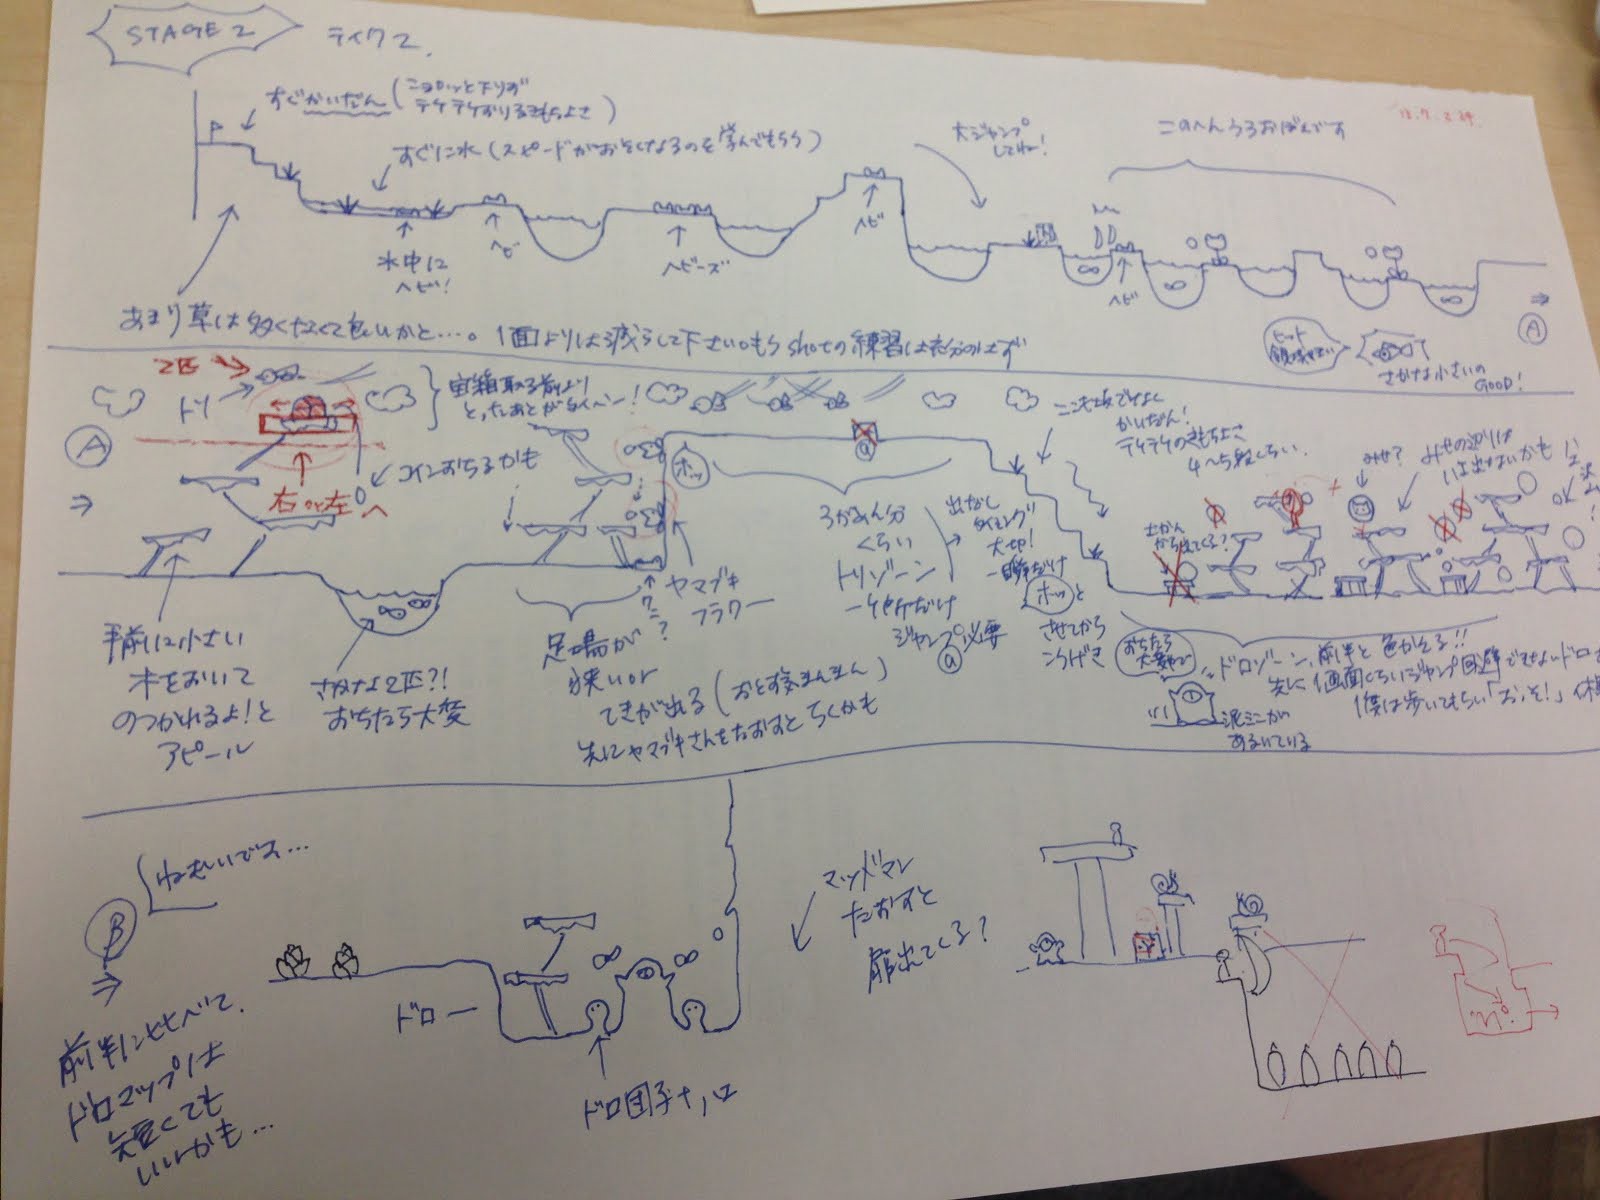 STAGE 2
テイク2.
すぐかいだん(
テケテケおりるきもちよさ)
すぐに水(スピードがおそくなるのを学んでもらう)
大ジャンプ
してねー!
このへんうろおぼえです
水中に
ヘビ!
ヘビ
ヘビーズ
ヘビ
ヘビ
あまり草は多くなくて良いかと…。1面よりは減らして下さい。もうshotの練習は充分のはず
さかな小さいの
GOOD!
A
A
⇒
2匹
トリ
宝箱取る前より
とったあとがタイヘンー!
コインおちるかも
右or左へ
手前に小さい
木をおいて
のっかれるよ!と
アピール
さかな2匹?!
おちたら大変
足場が
狭いor
てきが出る(おとす気まんまん)
先にヤマブキさんをたおすとらくかも
ヤマブキ
フラワー
ホッ
a
3がめん分
くらい
トリゾーン
一ヶ所だけ
ジャンプ必要
a
出なし
タイミング
大切!
一瞬だけ
ホッと
させてから
こうげき
かいだん!
テケテケのきもちよさ
4〜5段くらい.
土かん
から出てくる?
みせ?
みせの辺りは
は出ないかも
おちたら
大変
ドロゾーン、前半と色かえる!!
先に1画面くらいジャンプ回避できないドロ
僕は歩いてもらい「おっそ!」
泥ミニが
あるいている
B
⇒
ねむいです…
前半に比べて、
ドロマップは
短くても
いいかも…
ドロー
ドロ団子
マッドマン
たおすと
扉出てくる?